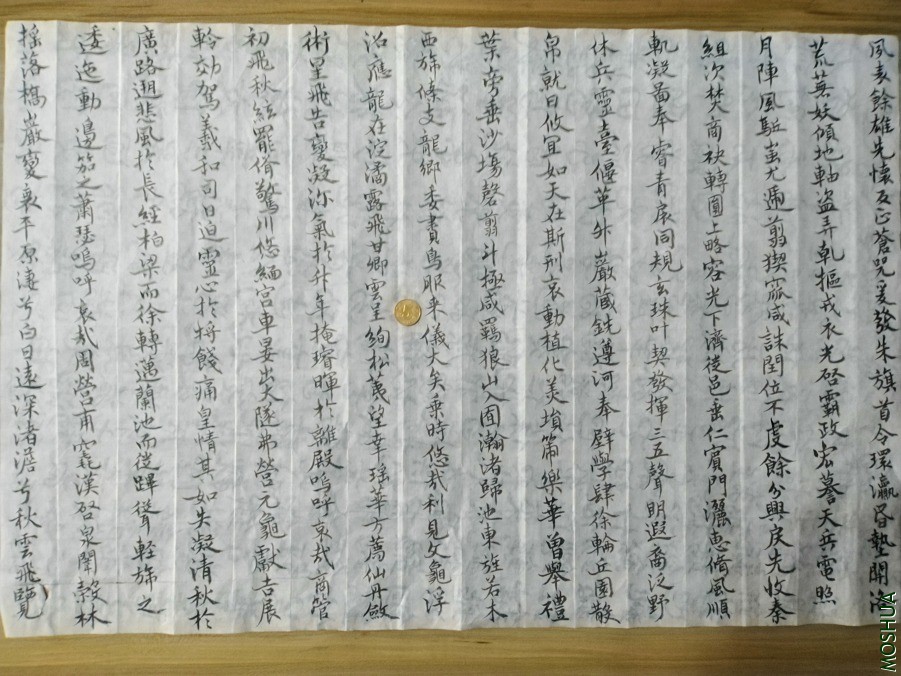 夙麦餘雄先懷反正蒼咒爰發朱旗首令環瀛昏墊開海
荒蕪妖傾地軸盜弄乾樞戎衣光啓霸政宏謩天兵電照
月陣風駈蚩尤遞翦猰窳咸誅閏位不虔餘分興戾先收秦
組次焚商袂轉圓上略容光下濟徙邑垂仁賓門灑惠脩風順
軌凝啚奉睿青戾同規玄珠叶契發揮三五聲明遐裔泛野
休兵靈臺偃革外巖蔵銑遵河奉壁學肆徐輪丘園散
帛就日攸冝如天在斯刑哀動植化美塤箎樂華曽舉禮
葉旁垂沙塲罄翦斗極咸羈狼山入囿瀚渚歸池東旌若木
西旆條支龍鄉委賮鳥服来儀大矣乗時悠哉利見文龜浮
沿應龍在淀潏露飛甘卿雲呈絢松茂望幸瑶華方薦仙丹斂
術星飛告變凝沴氣於升年掩璿暉於離殿嗚呼哀哉商管
初飛秋紘罷脩驚川悠緬宮車晏出天隧弗營元龜獻吉展
軨効駕羲和司日迫靈心於將餞痛皇情其如失凝清秋於
廣路遡悲風於長經柏梁而徐轉邁蘭池而従蹕聳軽旆之
逶迤動邊笳之蕭瑟嗚呼哀哉周營甫窆漢啓泉闈穀林
揺落橋巖變衰平原凄兮白日遠深渚澹兮秋雲飛覽
MOSHUA